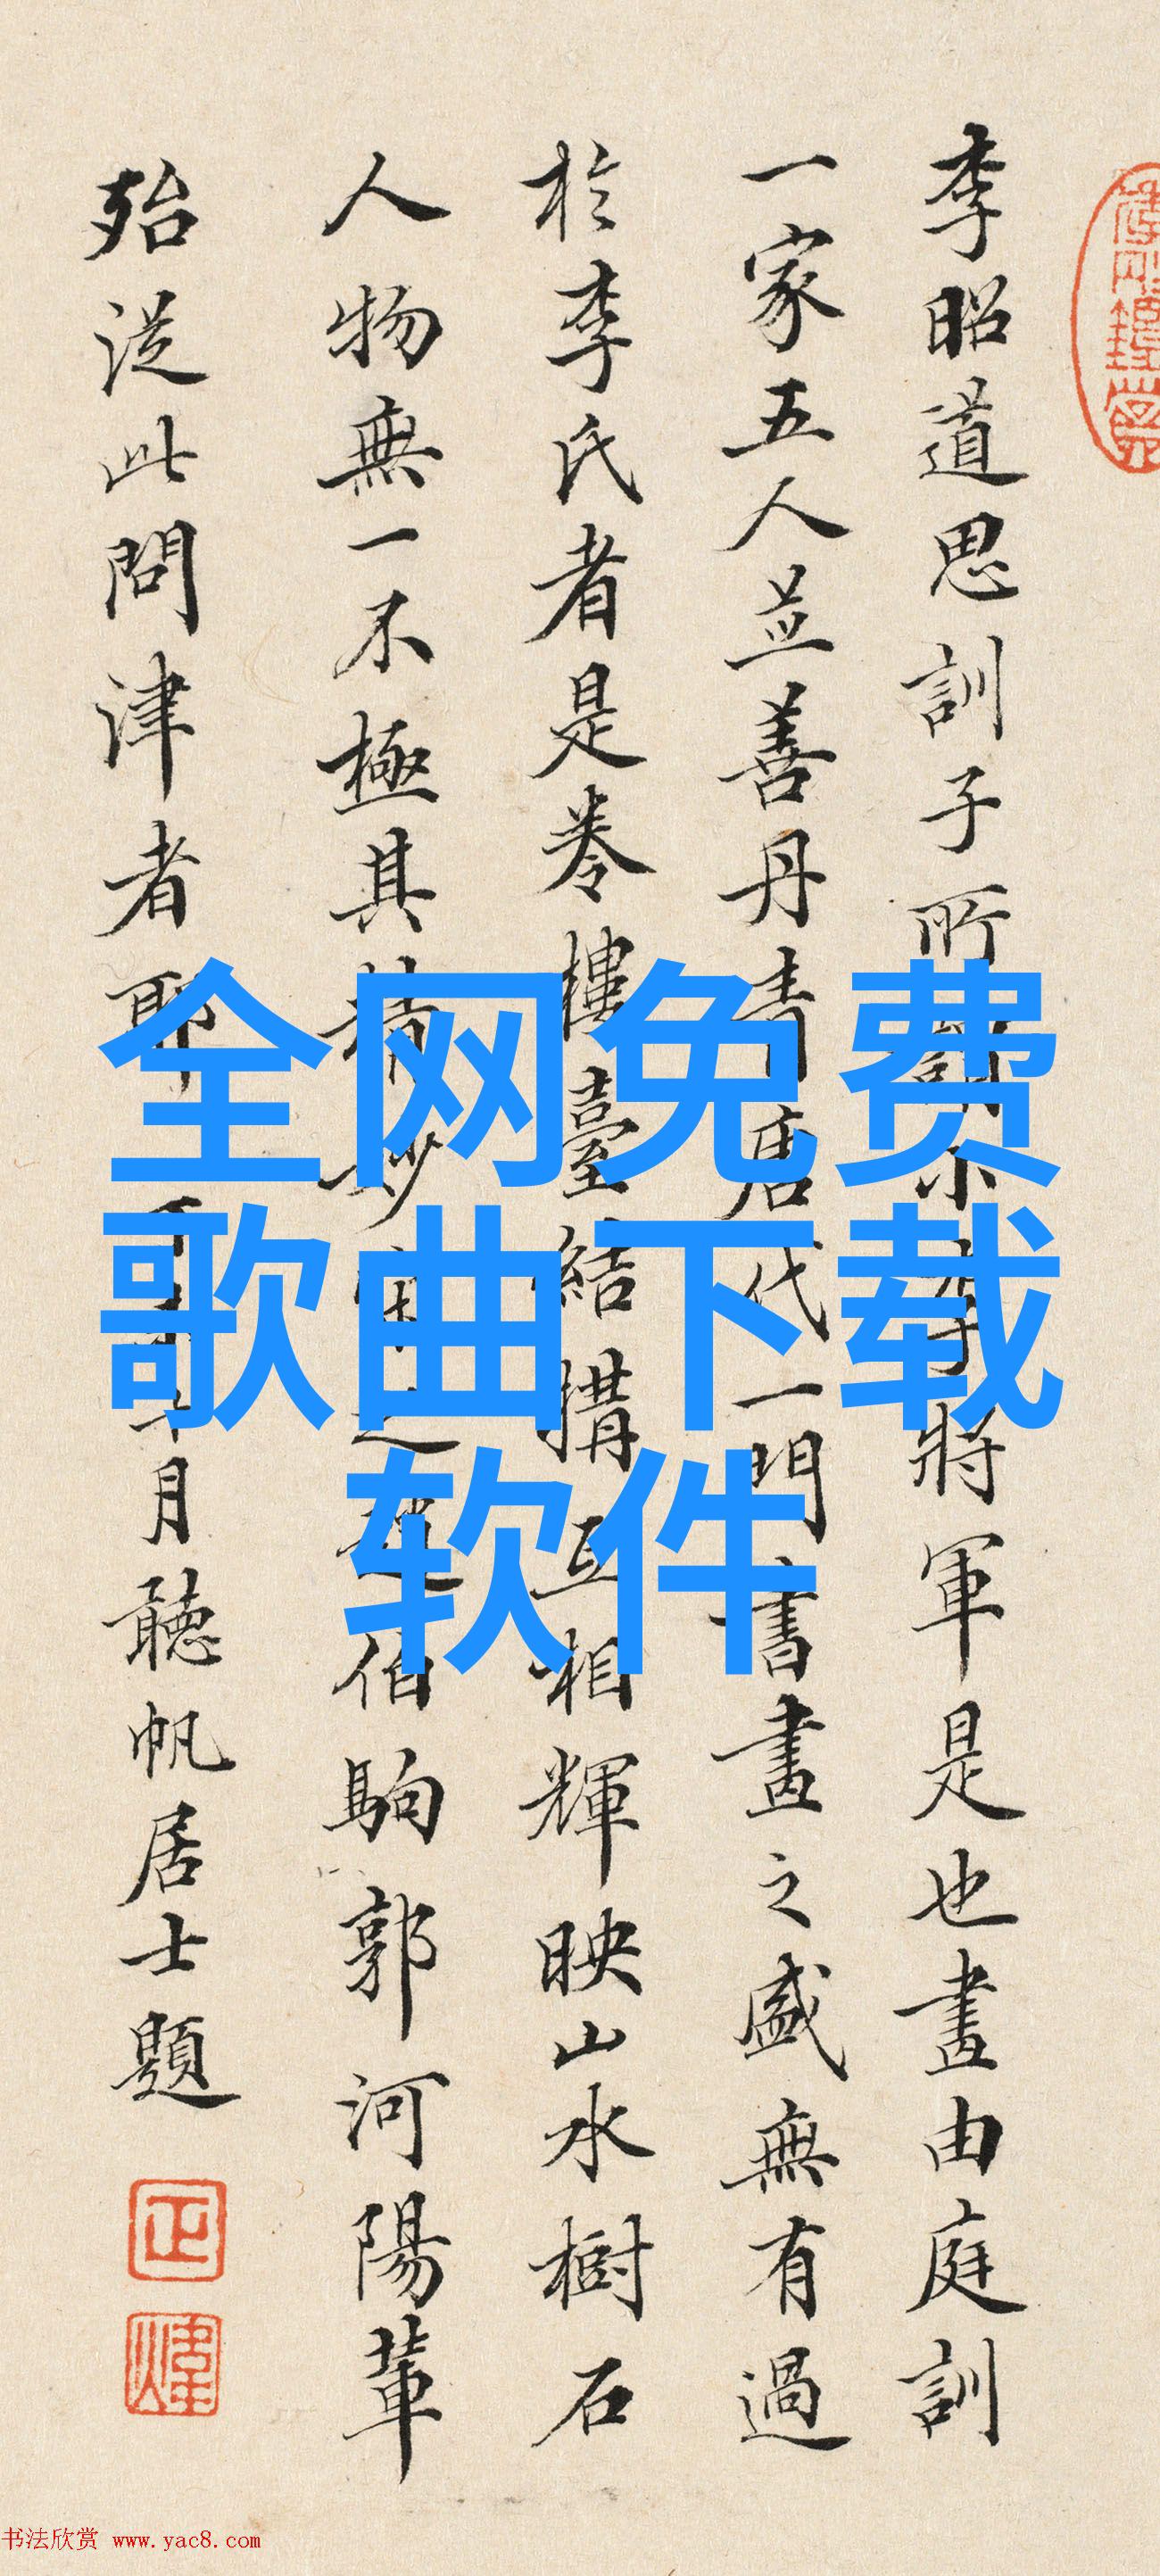 李昭道思訓子所謂小李將軍是也畫由庭訓
一家五人並善丹青唐代一門書畫之盛無有過
於李氏者是卷樓臺結搆互相輝映山水樹石
人物無一不極其精妙趙伯駒郭河陽輩
殆從此問津者耶月聽帆居士題
全网免费
歌曲下载
软件
书法欣赏 www.yac8.com